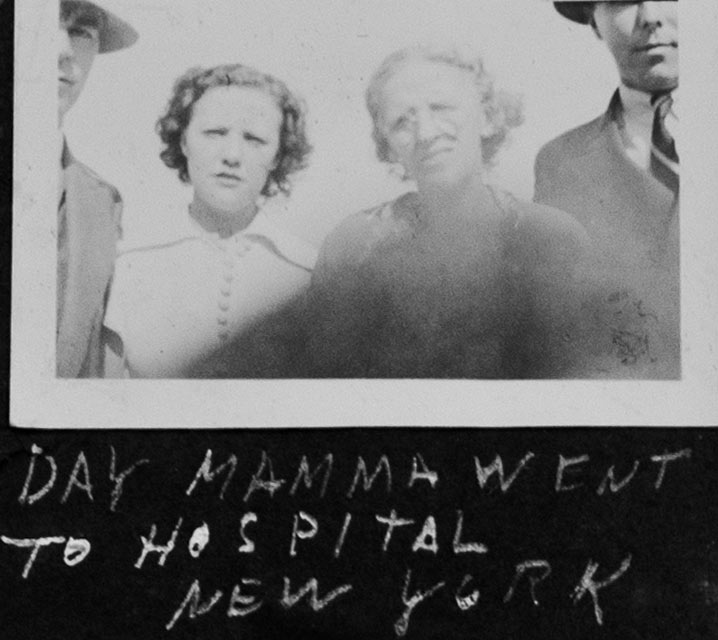 DAY MAMMA WENT
TO HOSPITAL
NEW YORK